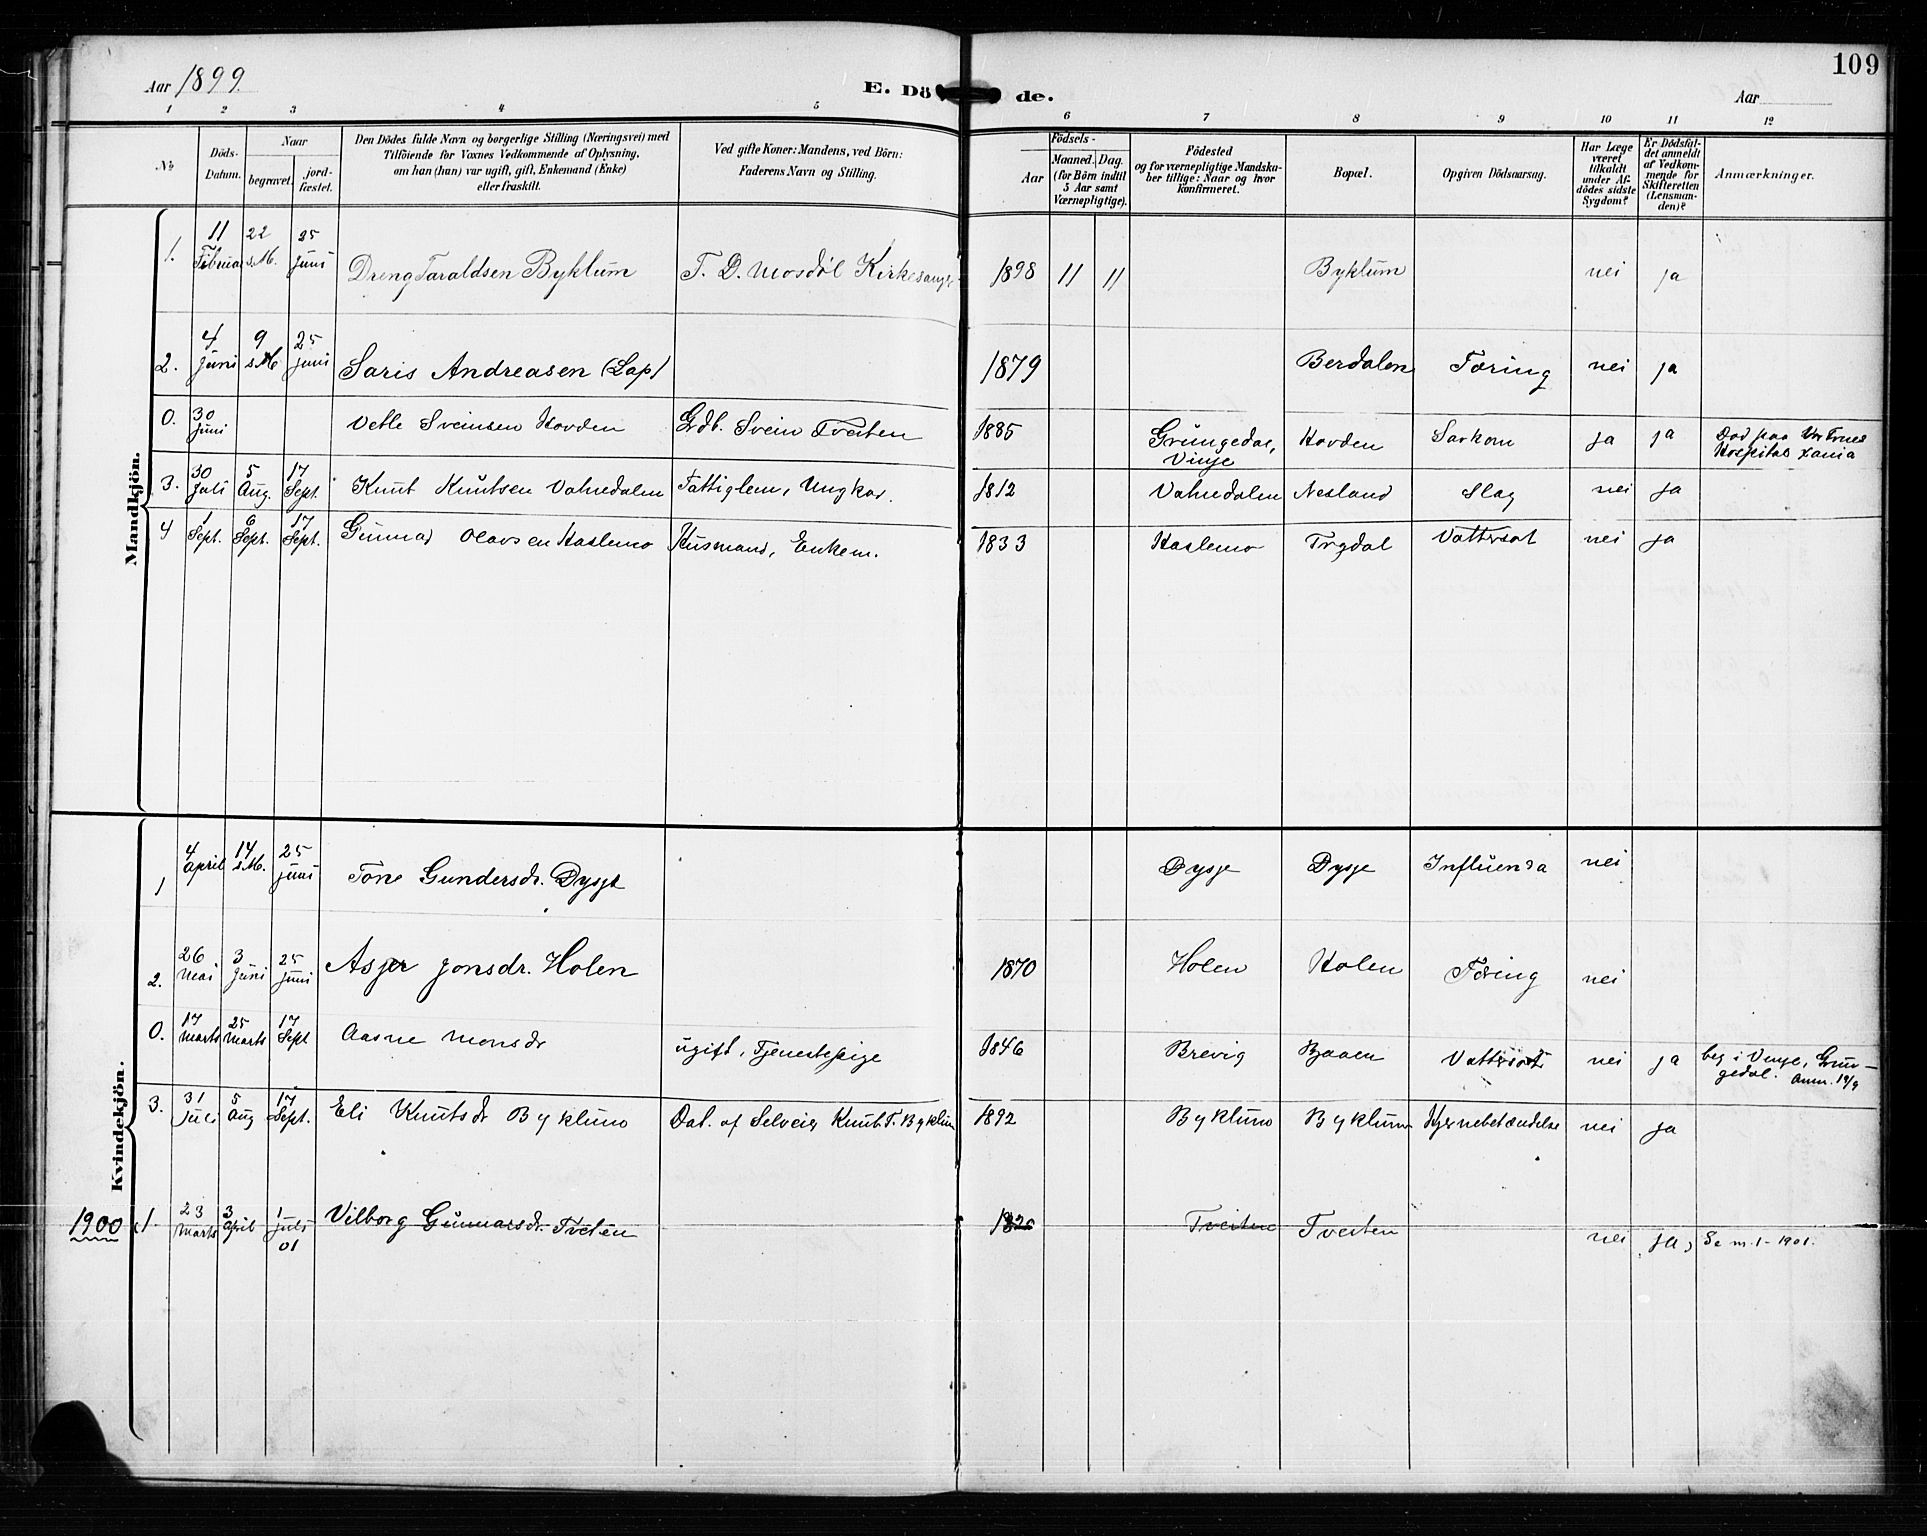 109
Aar 1899.
E. Dö de.
Aar
1 2 3 4 5 6 7 8 9 10 11 12
No
Döds-Datum.
Naar
begravet.
jord-fæstet.
Den Dödes fulde Navn og borgerlige Stilling (Næringsvei) med
Tilföiende for Voxnes Vedkommende af Oplysning,
om han (hun) var ugift, gift, Enkemand (Enke)
eller fraskilt.
Ved gifte Koner: Mandens, ved Börn:
Faderens Navn og Stilling.
Födsels-
Aar
Maaned. Dag.
(for Börn indtil
5 Aar samt
Værnepligtige).
Födested
og for værnepligtige Mandska-
ber tillige: Naar og hvor
konfirmeret.
Bopæl.
Opgiven Dödsaarsag.
Har Læge
været
tilkaldt
under Af-
dödes sidste
Sygdom?
Er Dödsfal-
det anmeldt
af Vedkom-
mende for
Skifteretten
(Lensman-
den)?
Anmærkninger.
Mandkjön.
1. 11 Februar 22 s.M. 25 Juni Dreng Taraldsen Byklum T. D. Mosdøl Kirkesanger 1898 11 11 Byklum nei ja
2. 4 Juni 9 s.M 25 juni Saris Andreasen (Lap) 1879 Berdalen Tæring nei ja
0. 30 Juni Vetle Sveinsen Hovden Grdb. Svein Tveiten 1885 Grungedal, Vinje Hovden Sarkom ja ja Død paa Vor Frues Hospital Xania
3. 30 Juli 5 Aug. 17 Sept. Knut Knutsen Vatnedalen Fattiglem, Ungkar. 1812 Vatnedalen Nesland Slag nei ja
4 1 Sept. 6 Sept. 17 Sept. Gunnar Olavsen Haslemo Husmand, Enkem. 1833 Haslemo Trydal Vattersot nei ja
Kvindekjön.
1 4 april 14 s.M. 25 juni Tone Gundersdr. Dysje Dysje Dysje Influensa nei
2. 26 Mai 3 Juni 25 Juni Asjer Jonsdr. Holen 1870 Holen Holen Tæring nei
0. 17 Marts 25 Marts 17 Sept Aasne Monsdr ugift, Tjenestepige 1846 Brevig Bjaaen Vattersot nei ja beg i Vinje, Grun-
gedal. Anm. 19/9
3. 31 Juli 5 Aug 17 Sept. Eli Knutsdr Byklum Dat. af Selveier Knut T. Byklum 1892 Byklum Byklum Hjernebetændelse nei ja
1900 1. 23 Marts 3 April 1 Juli 01 Vilborg Gunnarsdr. Tveten 1820 Tveiten Tveiten nei ja, Se m. 1 - 1901.